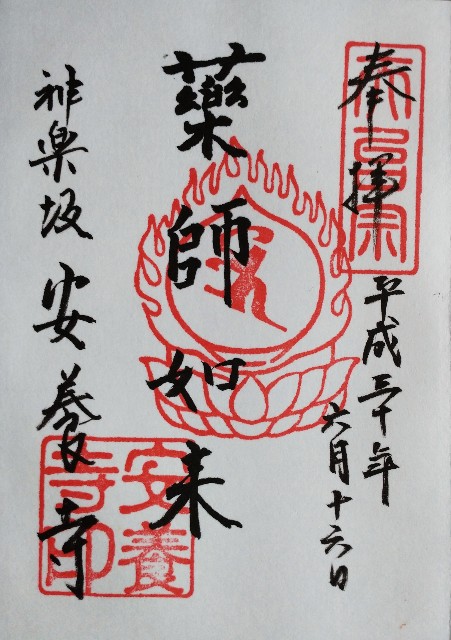 奉拝
平成三十年
六月十六日
藥師如来
神楽坂 安養寺
安養
寺印